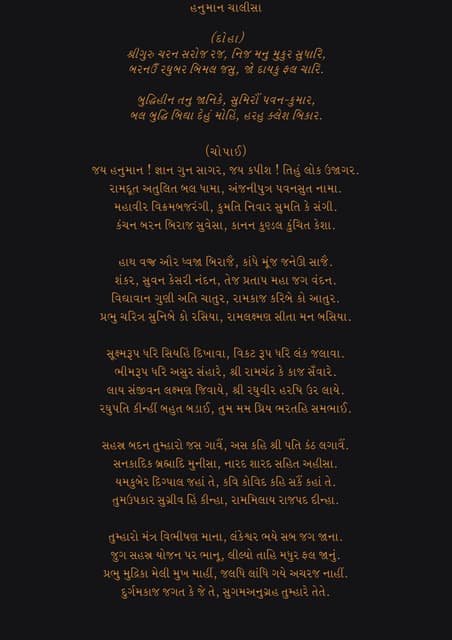 હનુમાન ચાલીસા
(દોહા)
શ્રીગુરુ ચરન સરોજ રજ, નિજ મનુ મુકુર સુધારિ,
બરનઉઁ રઘુબર બિમલ જસુ, જો દાયકુ ફલ ચારિ.
બુદ્ધિહીન તનુ જાનિકે, સુમિરૌં પવન-કુમાર,
બલ બુદ્ધિ બિદ્યા દેહું મોહિં, હરહુ ક્લેશ બિકાર.
(ચોપાઈ)
જય હનુમાન ! જ્ઞાન ગુન સાગર, જય કપીશ ! તિહું લોક ઉજાગર.
રામદૂત અતુલિત બલ ધામા, અંજનીપુત્ર પવનસુત નામા.
મહાવીર વિક્રમબજરંગી, કુમતિ નિવાર સુમતિ કે સંગી.
કંચન બરન બિરાજ સુવેસા, કાનન કુણ્ડલ કુંચિત કેશા.
હાથ વજ્ર ઔર ધ્વજા બિરાજૈ, કાંધે મૂંજ જનેઊ સાજૈ.
શંકર, સુવન કેસરી નંદન, તેજ પ્રતાપ મહા જગ વંદન.
વિદ્યાવાન ગુણી અતિ ચાતુર, રામકાજ કરિબે કો આતુર.
પ્રભુ ચરિત્ર સુનિબે કો રસિયા, રામલક્ષ્મણ સીતા મન બસિયા.
સૂક્ષ્મરૂપ ધરિ સિયહિં દિખાવા, વિકટ રૂપ ધરિ લંક જલાવા.
ભીમરૂપ ધરિ અસુર સંહારે, શ્રી રામચંદ્ર કે કાજ સઁવારે.
લાય સંજીવન લક્ષ્મણ જિવાયે, શ્રી રઘુવીર હરષિ ઉર લાયે.
રઘુપતિ કીન્હીં બહુત બડાઈ, તુમ મમ પ્રિય ભરતહિ સમભાઈ.
સહસ્ત્ર બદન તુમ્હારો જસ ગાવૈં, અસ કહિ શ્રી પતિ કંઠ લગાવૈં.
સનકાદિક બ્રહ્માદિ મુનીસા, નારદ શારદ સહિત અહીસા.
યમકુબેર દિગ્પાલ જહાં તે, કવિ કોવિદ કહિ સકૈં કહાં તે.
તુમઉપકાર સુગ્રીવ હિં કીન્હા, રામમિલાય રાજપદ દીન્હા.
તુમ્હારો મંત્ર વિભીષણ માના, લંકેશ્વર ભયે સબ જગ જાના.
જુગ સહસ્ત્ર યોજન પર ભાનૂ, લીલ્યો તાહિ મધુર ફલ જાનું.
પ્રભુ મુદ્રિકા મેલી મુખ માહીં, જલધિ લાંધિ ગયે અચરજ નાહીં.
દુર્ગમકાજ જગત કે જે તે, સુગમઅનુગ્રહ તુમ્હારે તેતે.